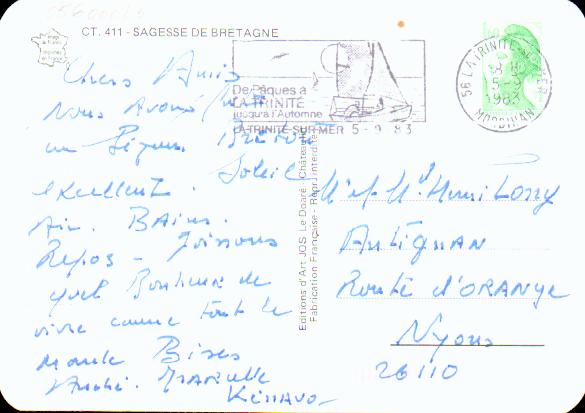 CT. 411 - SAGESSE DE BRETAGNE
De Pâques à
LA TRINITÉ
jusqu'à l'Automne
LA TRINITE-SUR-MER 5-9 83
56 LA TRINITE-SUR-MER
5-9
1983
MORBIHAN
Chers Amis
Nous Avons
un
excellent. Soleil
Air. BAins.
Repos - Joissons
quel Bonheur de
vivre comme tout le
monde Bises
André. Marcelle
Kénavo
Editions d'Art JOS Le Doaré
Fabrication Française - Repr. interdite
Mr et Me Henri
Route d'ORANGE
Nyons
26110